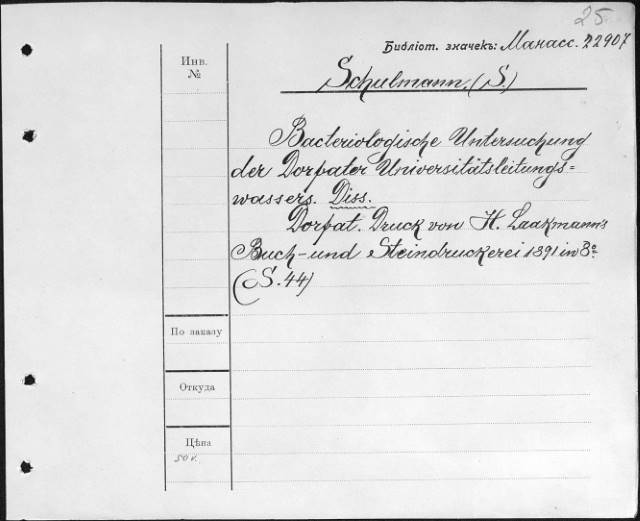 25.
Библіот. значекъ: Манасс. 22907
Инв.
№
Schulmann. (S.)
Bacteriologische Untersuchung
der Dorpater Universitätsleitungs=
wassers. Diss.
Dorpat. Druck von H. Laakmann's
Buch- und Steindruckerei 1891 in 8º
(S. 44)
По заказу
Откуда
Цѣна
50 к.